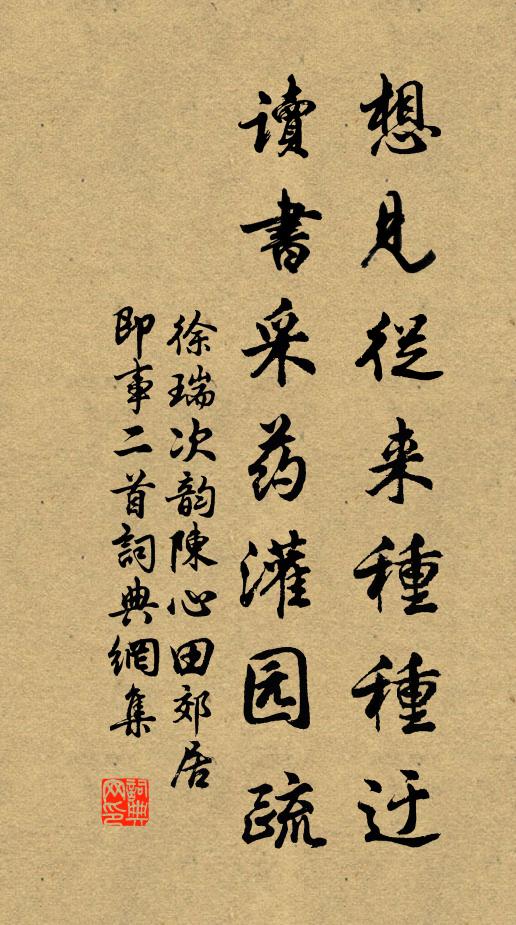 想見從来種種迂
讀書采药灌园疏
徐瑞次韵陳心田郊居
即事二首詞典網集
詞典網印